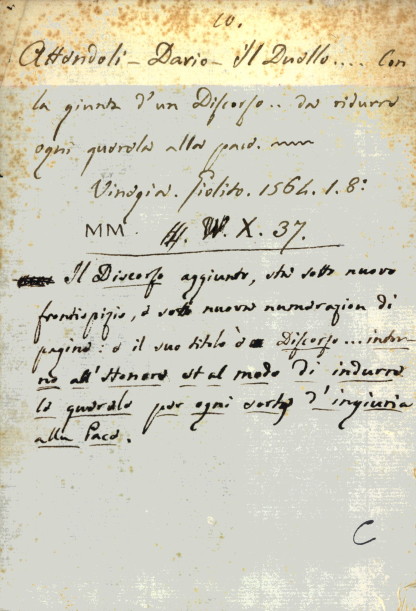 10.
Attendoli - Dario - il Duello.... Con
la giunta d'un Discorso.. da ridurre
ogni querela alla pace.
Vinegia. Giolito. 1564. 1. 8:
MM. H. W. X. 37.
Il Discorso aggiunto, sta sotto nuovo
frontispizio, e sotto nuova numerazion di
pagine: e il suo titolo è Discorso... intor-
no all'Honore et al modo di indurre
le querele per ogni sorte d'ingiuria
alla Pace.
C